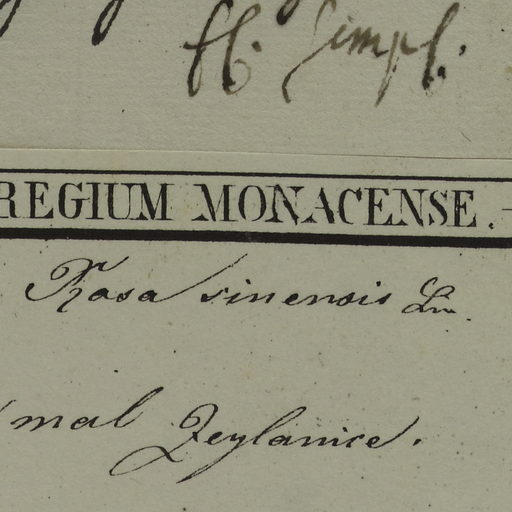 fl. simpl.
REGIUM MONACENSE.
Rosa sinensis Lin
mal Zeylanice.